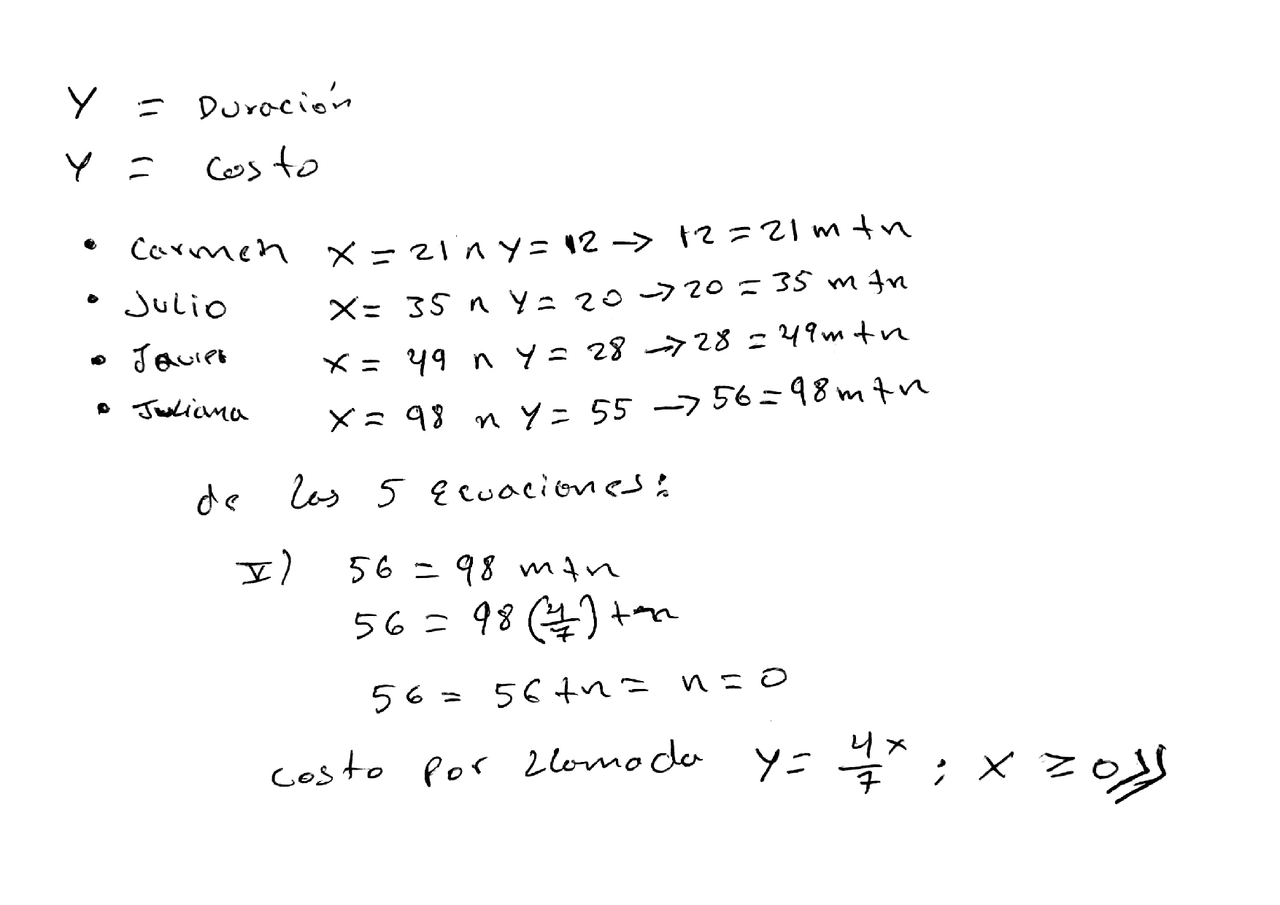 Y = Duración
Y = Costo
• Carmen X = 21 ∧ Y = 12 → 12 = 21 m + n
• Julio X = 35 ∧ Y = 20 → 20 = 35 m + n
• Javier X = 49 ∧ Y = 28 → 28 = 49 m + n
• Juliana X = 98 ∧ Y = 55 → 56 = 98 m + n
de las 5 Ecuaciones:
V) 56 = 98 m + n
56 = 98 (4/7) + n
56 = 56 + n = n = 0
costo por llamada Y = 4x/7 ; X ≥ 0